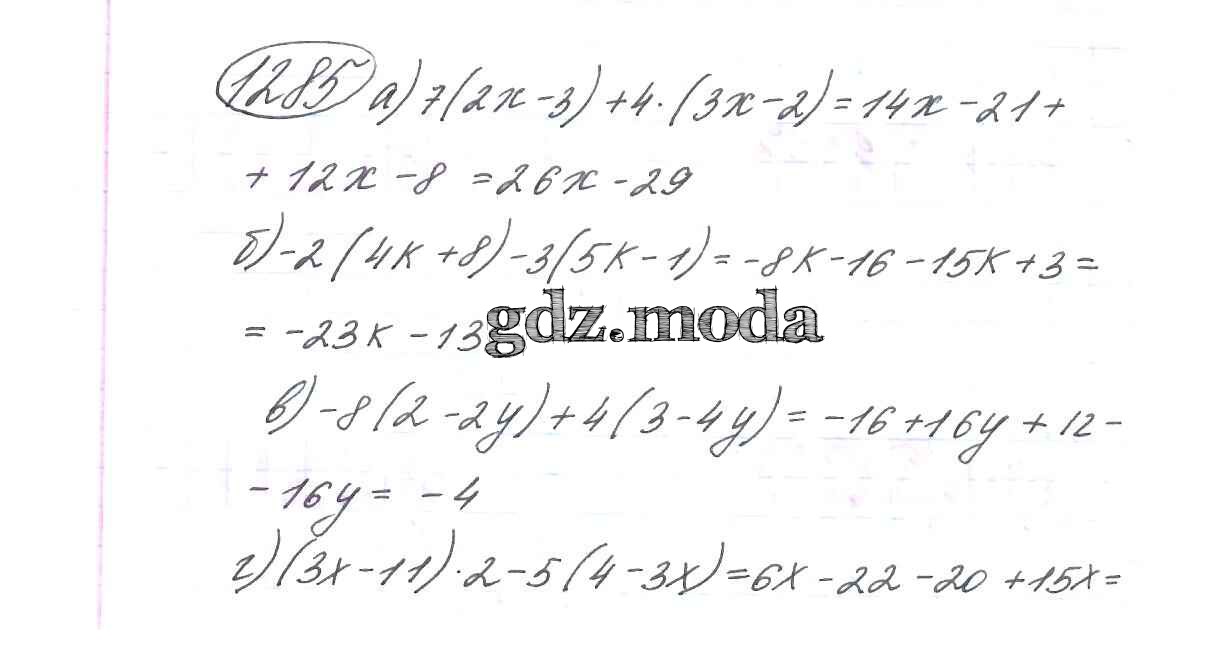 1285 а) 7(2x-3)+4·(3x-2)=14x-21+
+12x-8 =26x-29
б) -2(4к+8)-3(5к-1)=-8к-16-15к+3=
= -23к-13
gdz.moda
в) -8(2-2y)+4(3-4y)=-16+16y+12-
-16y= -4
г) (3x-11)·2-5(4-3x)=6x-22-20+15x=